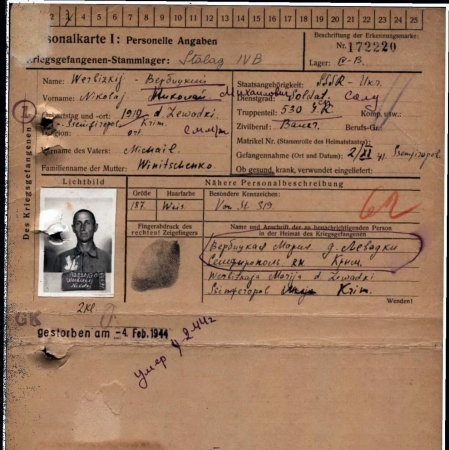 2 3 4 5 6 7 8 9 10 11 12 13 14 15 16 17 18 19 20 21 22 23 24 25
Personalkarte I: Personelle Angaben
Kriegsgefangenen-Stammlager: Stalag IVB
Beschriftung der Erkennungsmarke:
Nr. 172220
Lager: IV-B.
Des Kriegsgefangenen
Name: Werbizkij - Вербицкий
Vorname: Nikolaj Николай Михайлович
Geburtstag und -ort: 1919 d. Lewadki
Krim.
Vorname des Vaters: Michail.
Familienname der Mutter: Winitschenko.
Staatsangehörigkeit: SSSR - Ukr.
Dienstgrad: Soldat
Truppenteil: 530 Komp. usw.:
Zivilberuf: Bauer. Berufs-Gr.:
Matrikel Nr. (Stammrolle des Heimatstaates):
Gefangennahme (Ort und Datum):
Ob gesund, krank, verwundet eingeliefert:
Lichtbild
Nähere Personalbeschreibung
Größe Haarfarbe Besondere Kennzeichen:
187. Von St. 319
62
Fingerabdruck des rechten! Zeigefingers
Name und Anschrift der zu benachrichtigenden Person
in der Heimat des Kriegsgefangenen
Вербицкая Мария д. Левадки
Werbizkaja Marija d. Lewadki
Krim.
Wenden!
GK
gestorben am -4. Feb. 1944
умер 4.2.44г